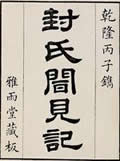 乾隆丙子鐫
封氏聞見記
雅雨堂藏板